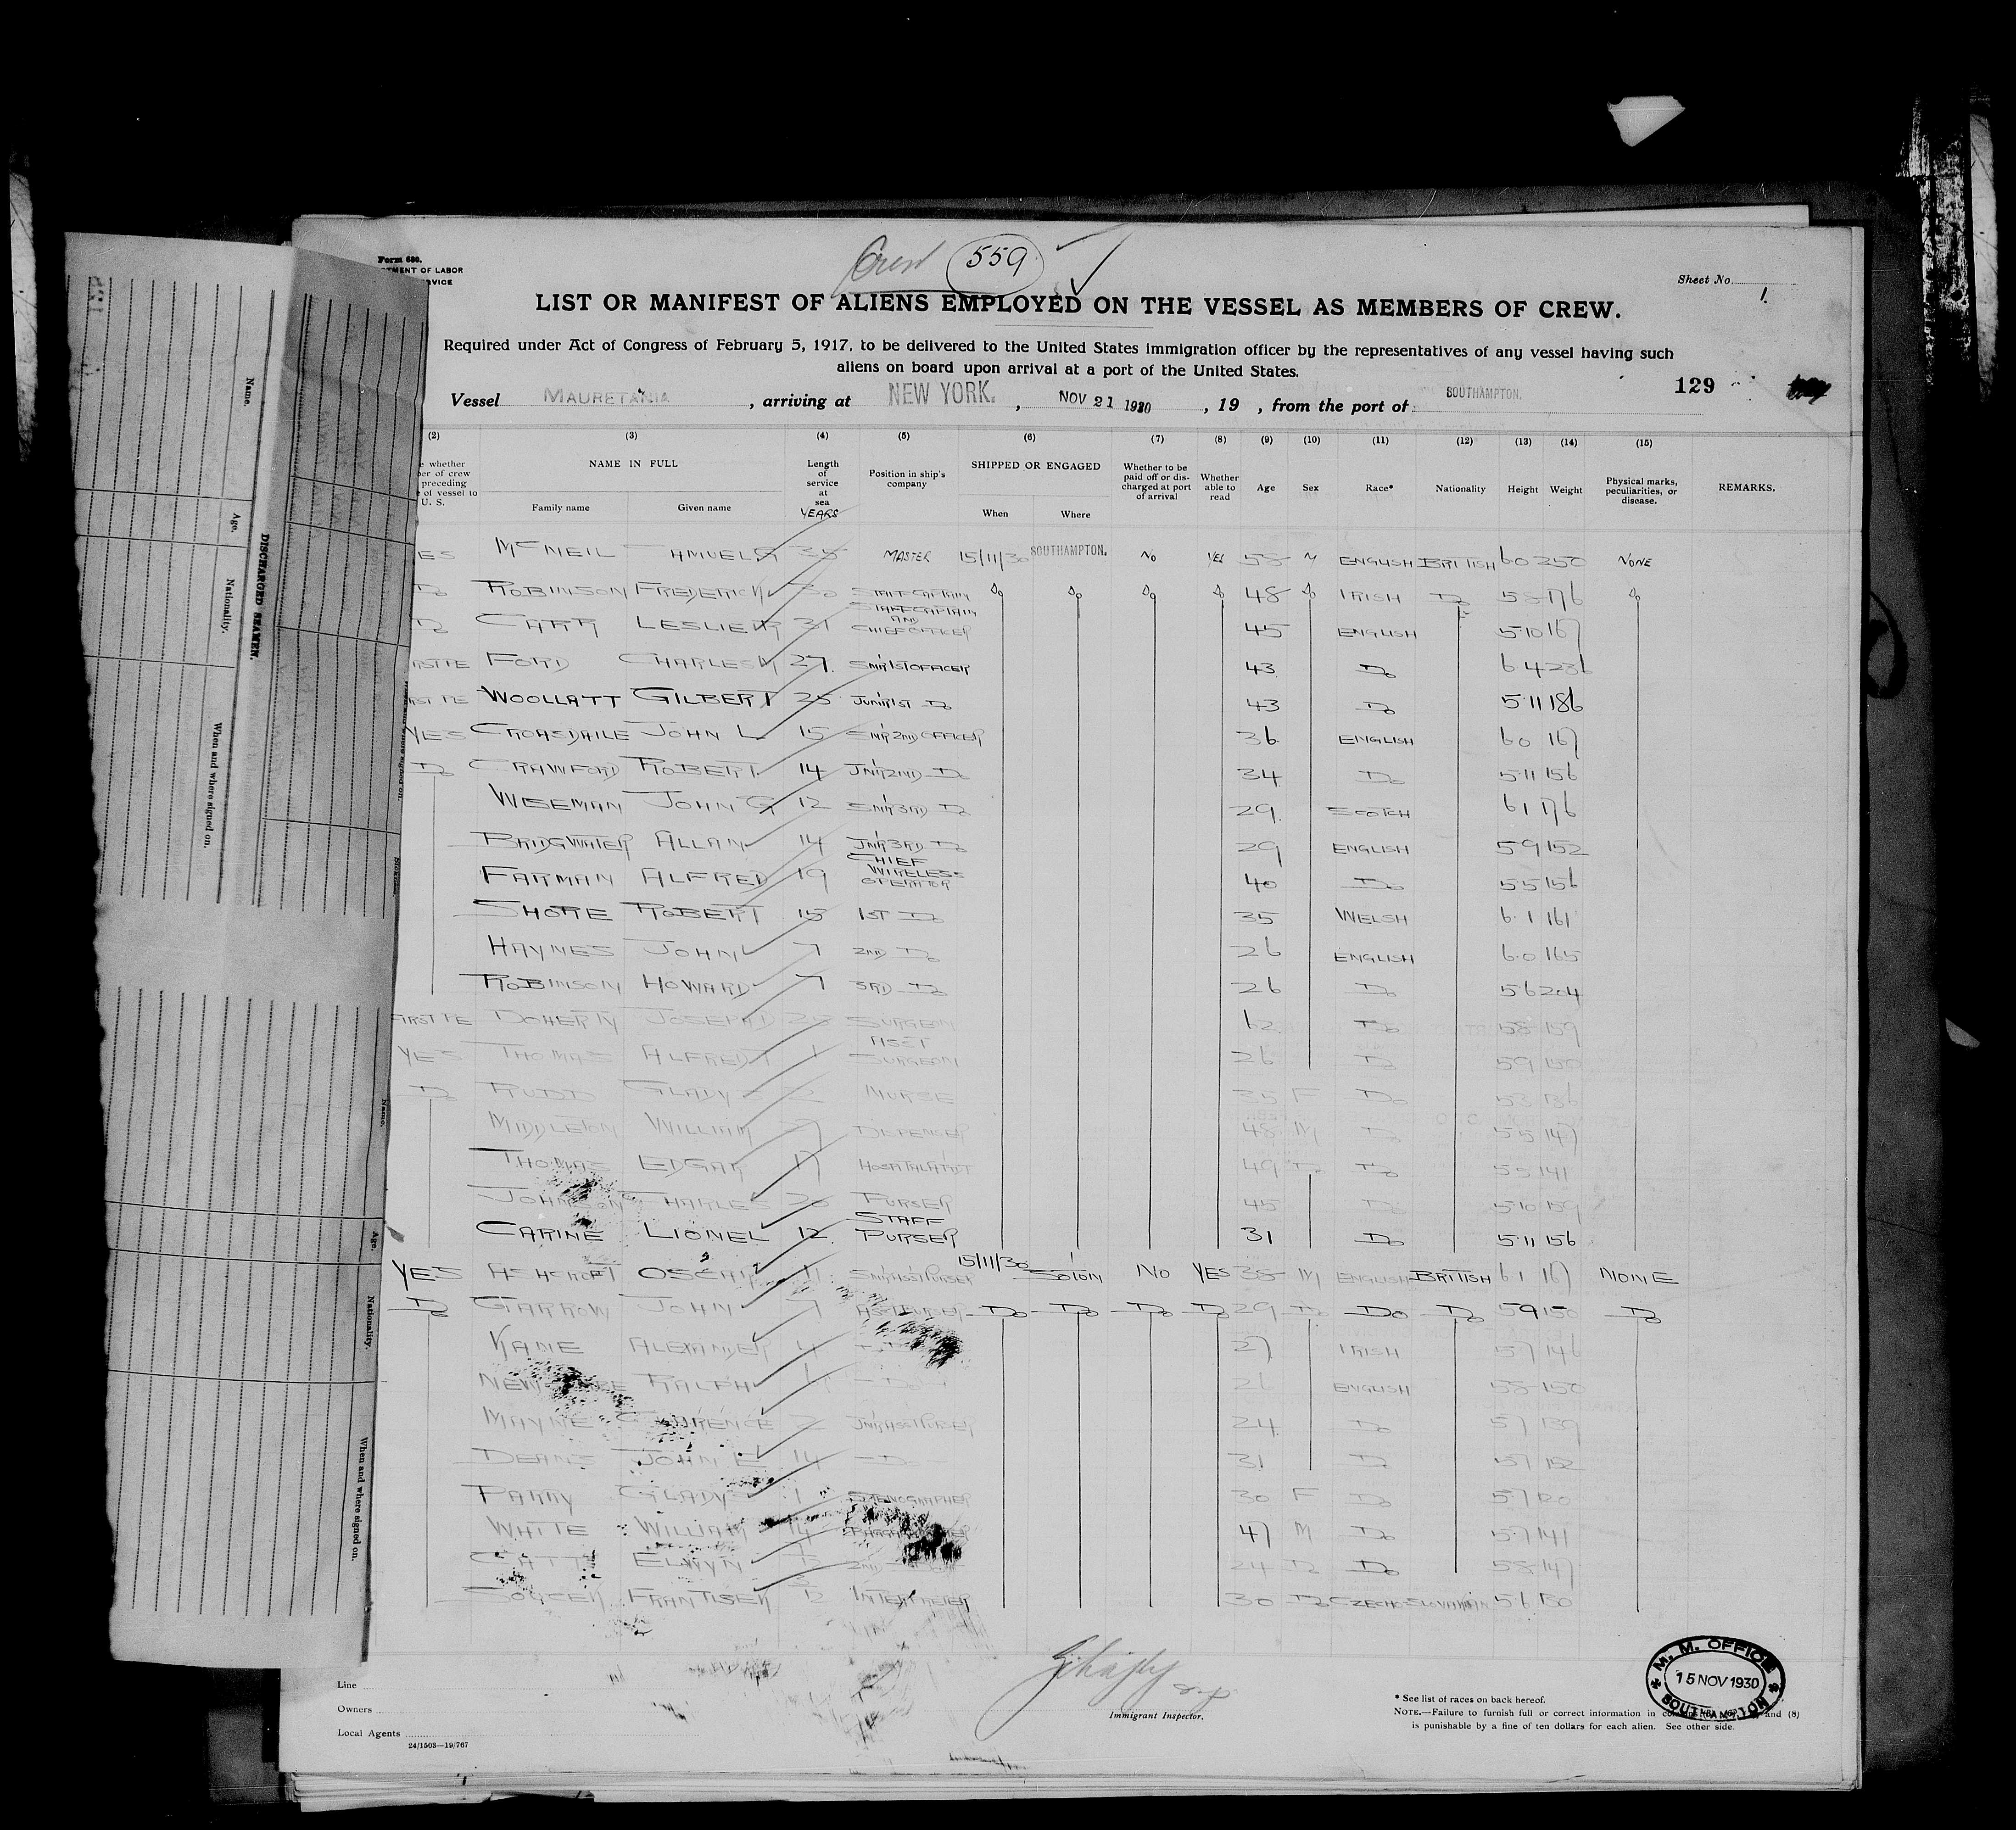 Crew 559
Form 680.
TMENT OF LABOR
RVICE
Sheet No. 1.
LIST OR MANIFEST OF ALIENS EMPLOYED ON THE VESSEL AS MEMBERS OF CREW.
Required under Act of Congress of February 5, 1917, to be delivered to the United States immigration officer by the representatives of any vessel having such
aliens on board upon arrival at a port of the United States.
129
Vessel MAURETANIA, arriving at NEW YORK., NOV 21 1930, 19 , from the port of SOUTHAMPTON.
(2) (3) (4) (5) (6) (7) (8) (9) (10) (11) (12) (13) (14) (15)
e whether
er of crew
preceding
e of vessel to
U. S.
NAME IN FULL
Family name Given name
Length
of
service
at
sea
YEARS
Position in ship's
company
SHIPPED OR ENGAGED
When Where
Whether to be
paid off or dis-
charged at port
of arrival
Whether
able to
read
Age Sex Race* Nationality Height Weight
Physical marks,
peculiarities, or
disease.
REMARKS.
ES McNEIL SAMUEL G 35 MASTER 15/11/30 SOUTHAMPTON. NO YES 58 M ENGLISH BRITISH 6 0 250 NONE
Do ROBINSON FREDERICK 30 STAFF CAPTAIN Do Do Do Do 48 Do IRISH Do 5 8 176 Do
Do CARR LESLIE 31 STAFF CAPTAIN AND CHIEF OFFICER 45 ENGLISH 5.10 167
FORD CHARLES 27. SNR 1ST OFFICER 43 Do 6.4 236
WOOLLATT GILBERT 25 JUNR 1ST Do 43 Do 5.11 186
YES CROASDAILE JOHN L 15 SNR 2ND OFFICER 36 ENGLISH 6 0 167
Do CRAWFORD ROBERT 14 JNR 2ND Do 34 Do 5.11 156
WISEMAN JOHN G 12 SNR 3RD Do 29 SCOTCH 6 1 176
BRIDGWATER ALLAN 14 JNR 3RD Do 29 ENGLISH 5 9 152
FARMAN ALFRED 19 CHIEF WIRELESS OPERATOR 40 Do 5 5 156
SHORE ROBERT 15 1ST Do 35 WELSH 6.1 161
HAYNES JOHN 7 2ND Do 26 ENGLISH 6.0 165
ROBINSON HOWARD 7 3RD Do 26 Do 5 6 204
DOHERTY JOSEPH SURGEON 62 Do 5 8 159
YES THOMAS ALFRED 1 ASST SURGEON 26 Do 5 9 150
Do RUDD GLADY NURSE 35 F Do 5 3 136
MIDDLETON WILLIAM DISPENSER 48 M Do 5 5 147
THOMAS EDGAR 17 HOSPITAL ATTDT 49 Do Do 5 5 141
JOHNSON CHARLES PURSER 45 Do 5.10 159
CARINE LIONEL 12 STAFF PURSER 31 Do 5.11 156
YES ASHCROFT OSCAR 11 SNR ASST PURSER 15/11/30 SO'TON NO YES 38 M ENGLISH BRITISH 6 1 167 NONE
Do GARROW JOHN 7 ASST PURSER Do Do Do Do 29 Do Do Do 5 9 150 Do
KANE ALEXANDER 4 27 IRISH 5.7 146
RALPH Do 21 ENGLISH 5 8 150
MAYNE 2 JNR ASST PURSER 24 Do 5.7 139
DEANS JOHN E 14 Do 31 Do 5.7 152
PARRY GLADYS 1 STENOGRAPHER 30 F Do 5.7 120
WHITE WILLIAM 14 47 M Do 5.7 141
ELWYN 2ND 24 Do Do 5.8 147
SOUCEK FRANTISEK 12 INTERPRETER 30 Do CZECHO SLOVAKIAN 5.6 130
Line
Owners
Local Agents
24/1503—19/767
Immigrant Inspector.
* See list of races on back hereof.
NOTE.—Failure to furnish full or correct information in and (8)
is punishable by a fine of ten dollars for each alien. See other side.
M. M. OFFICE
15 NOV 1930
SOUTHAMPTON
DISCHARGED SEAMEN.
Name.
Age.
Nationality.
When and where signed on.
Name.
Age.
Nationality.
When and where signed on.